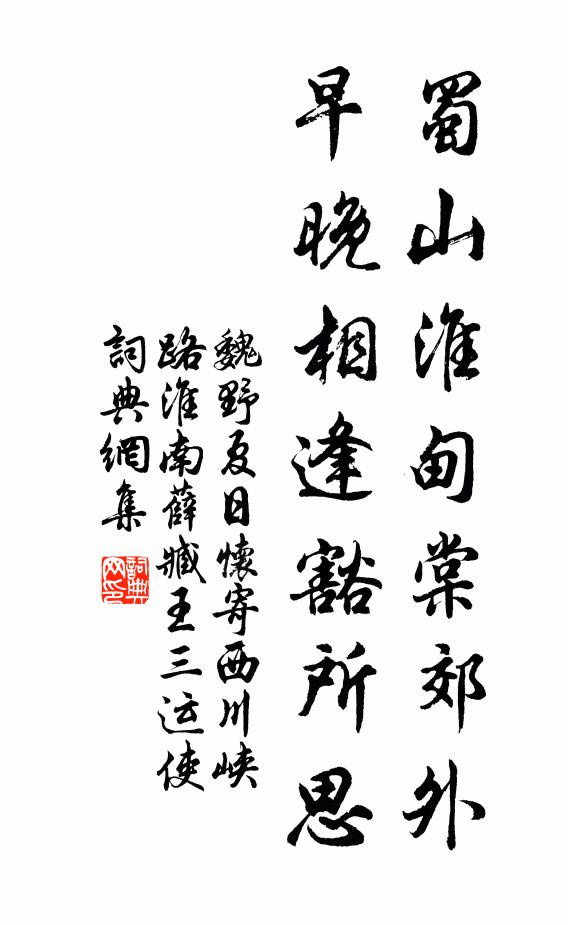 蜀山淮甸棠郊外
早晚相逢豁所思
魏野夏日懷寄西川峽
路淮南薛臧王三运使
詞典網集
詞典
网印